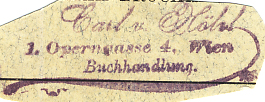 Carl v. Hölzl
1. Operngasse 4, Wien
Buchhandlung.